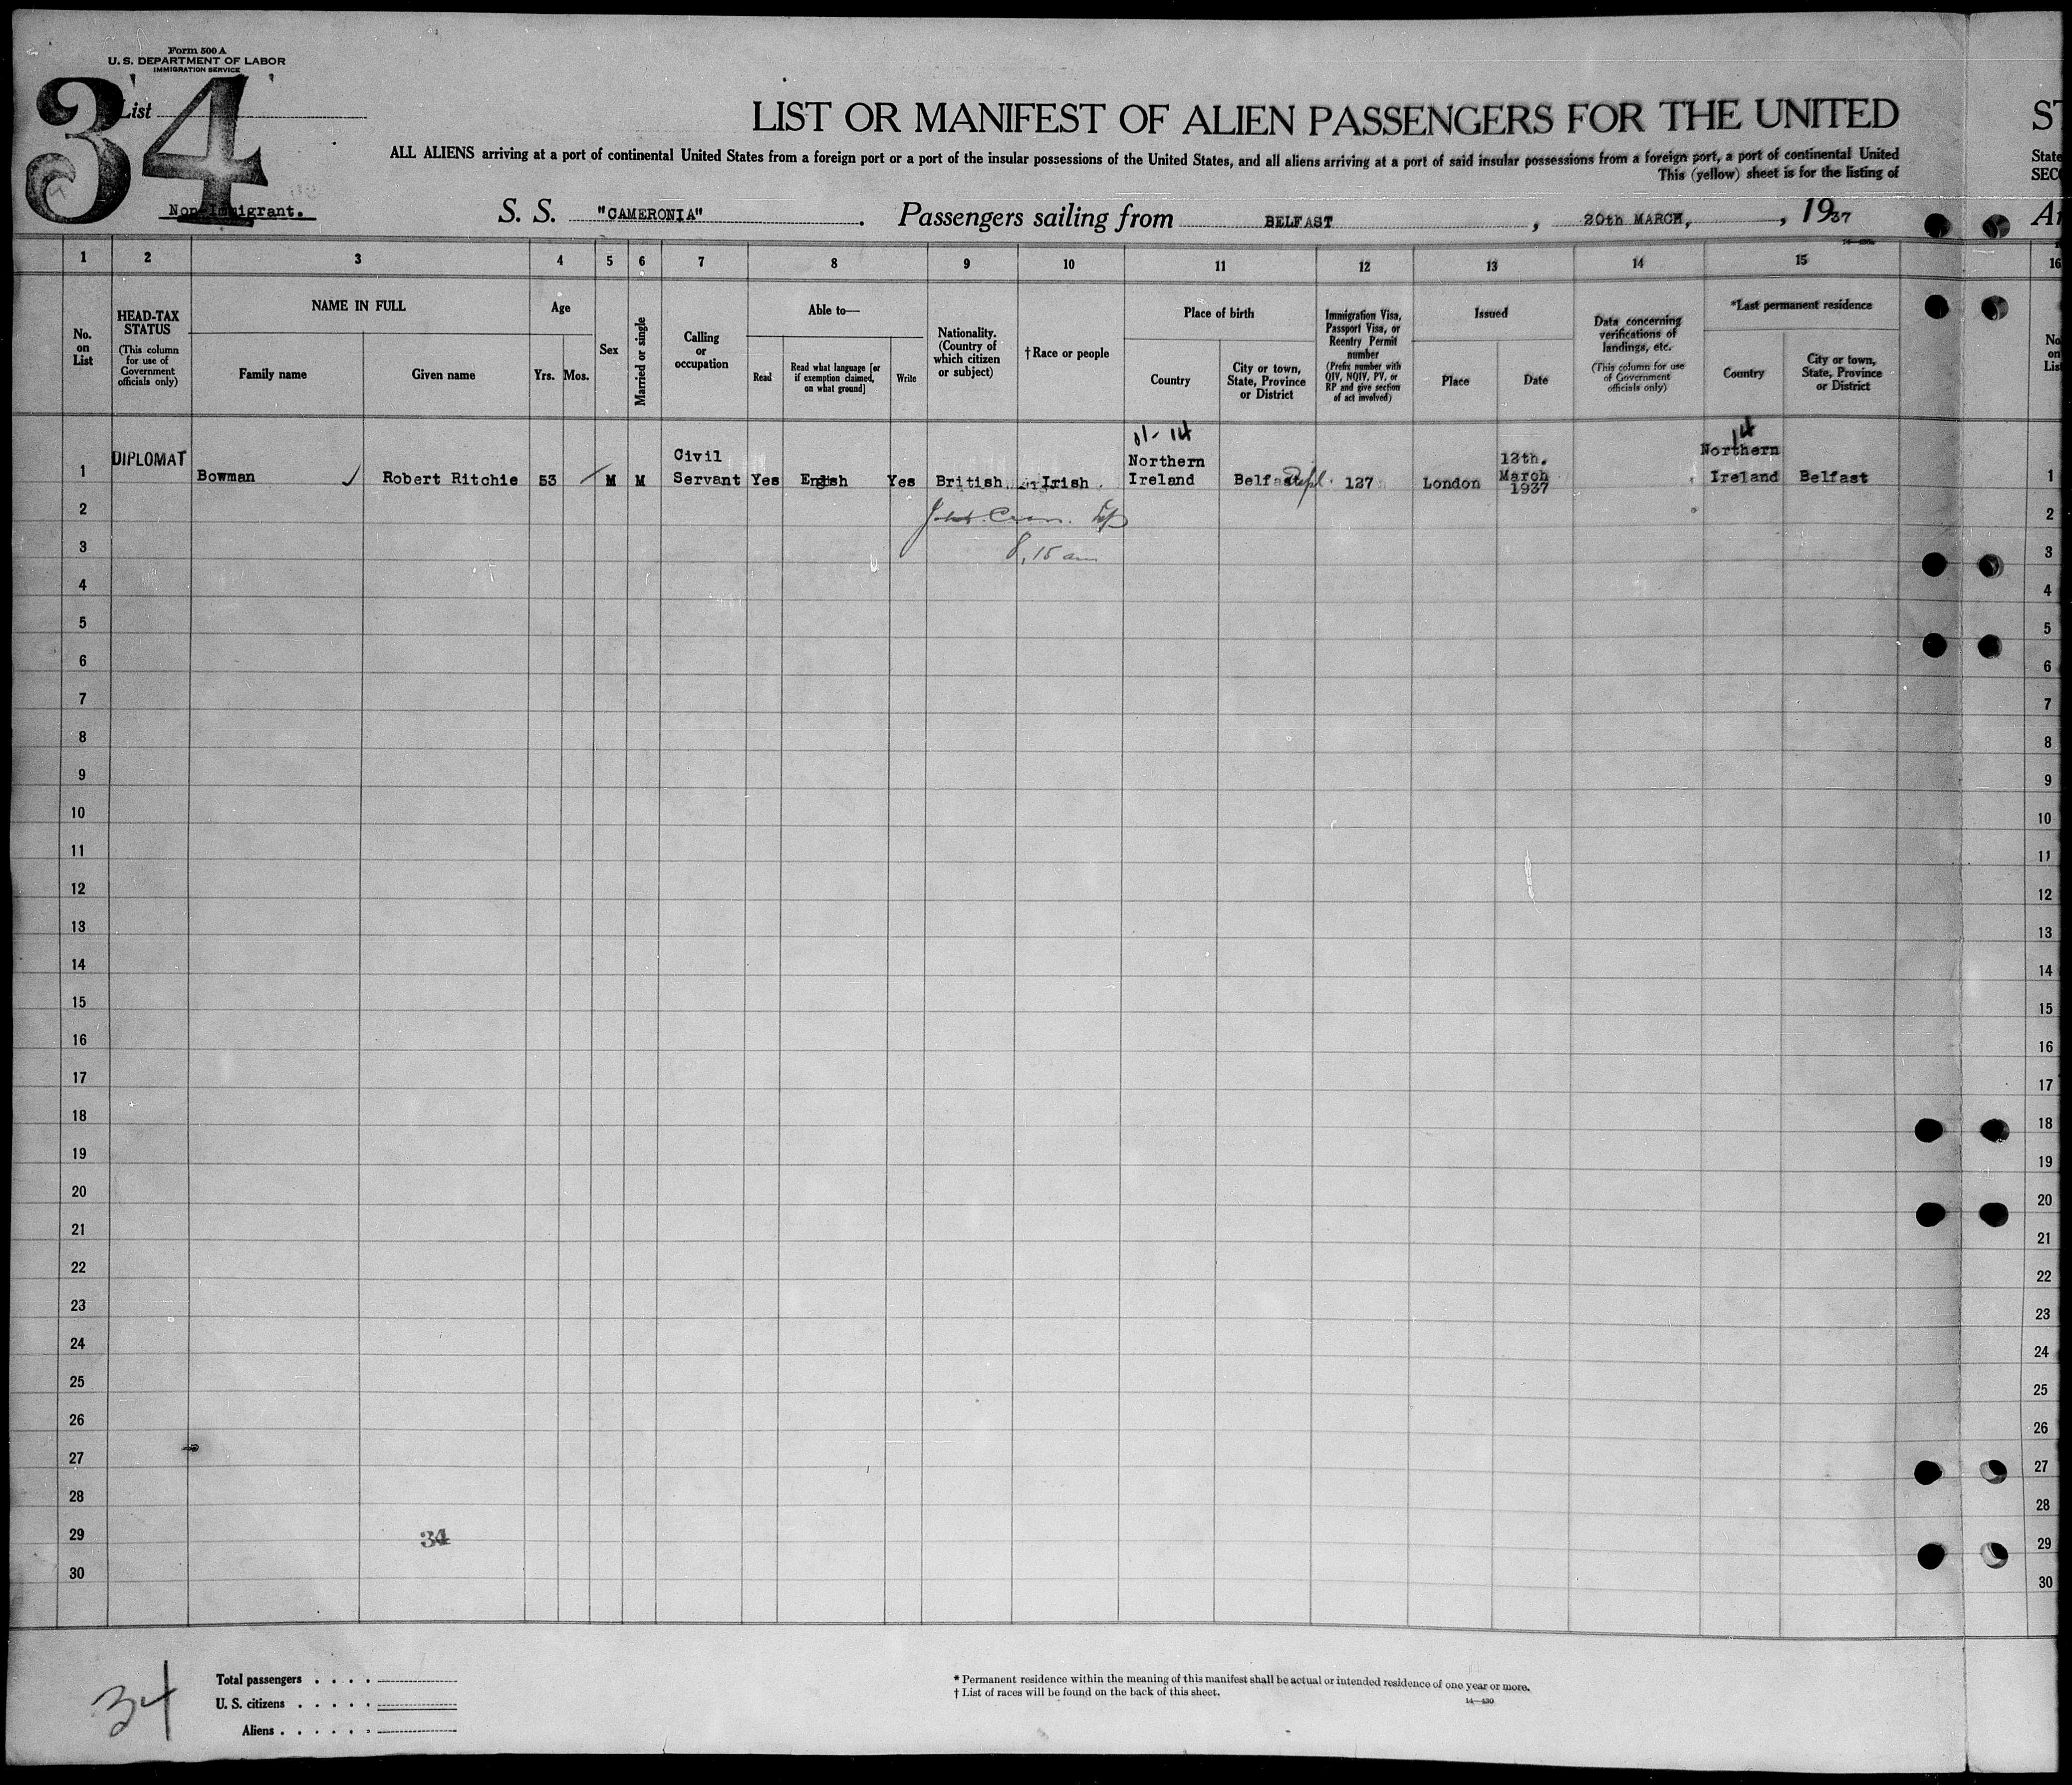 Form 500 A
U. S. DEPARTMENT OF LABOR
IMMIGRATION SERVICE
34
List
LIST OR MANIFEST OF ALIEN PASSENGERS FOR THE UNITED
ST
ALL ALIENS arriving at a port of continental United States from a foreign port or a port of the insular possessions of the United States, and all aliens arriving at a port of said insular possessions from a foreign port, a port of continental United
State
This (yellow) sheet is for the listing of
SEC
Non-Immigrant.
S. S. "CAMERONIA". Passengers sailing from BELFAST, 20th MARCH, , 1937
1 2 3 4 5 6 7 8 9 10 11 12 13 14 15 16
No. on List
HEAD-TAX STATUS
(This column for use of Government officials only)
NAME IN FULL
Family name
Given name
Age
Yrs. Mos.
Sex
Married or single
Calling or occupation
Able to—
Read
Read what language [or if exemption claimed, on what ground]
Write
Nationality. (Country of which citizen or subject)
† Race or people
Place of birth
Country
City or town, State, Province or District
Immigration Visa, Passport Visa, or Reentry Permit number
(Prefix number with QIV, NQIV, PV, or RP and give section of act involved)
Issued
Place
Date
Data concerning verifications of landings, etc.
(This column for use of Government officials only)
*Last permanent residence
Country
City or town, State, Province or District
No
on
Lis
1 DIPLOMAT Bowman Robert Ritchie 53 M M Civil Servant Yes English Yes British Irish Northern Ireland Belfast 127 London 12th. March 1937 Northern Ireland Belfast 1
14
2 2
3 8.15 am 3
4 4
5 5
6 6
7 7
8 8
9 9
10 10
11 11
12 12
13 13
14 14
15 15
16 16
17 17
18 18
19 19
20 20
21 21
22 22
23 23
24 24
25 25
26 26
27 27
28 28
29 34 29
30 30
34
Total passengers
U. S. citizens
Aliens
* Permanent residence within the meaning of this manifest shall be actual or intended residence of one year or more.
† List of races will be found on the back of this sheet.
14—430